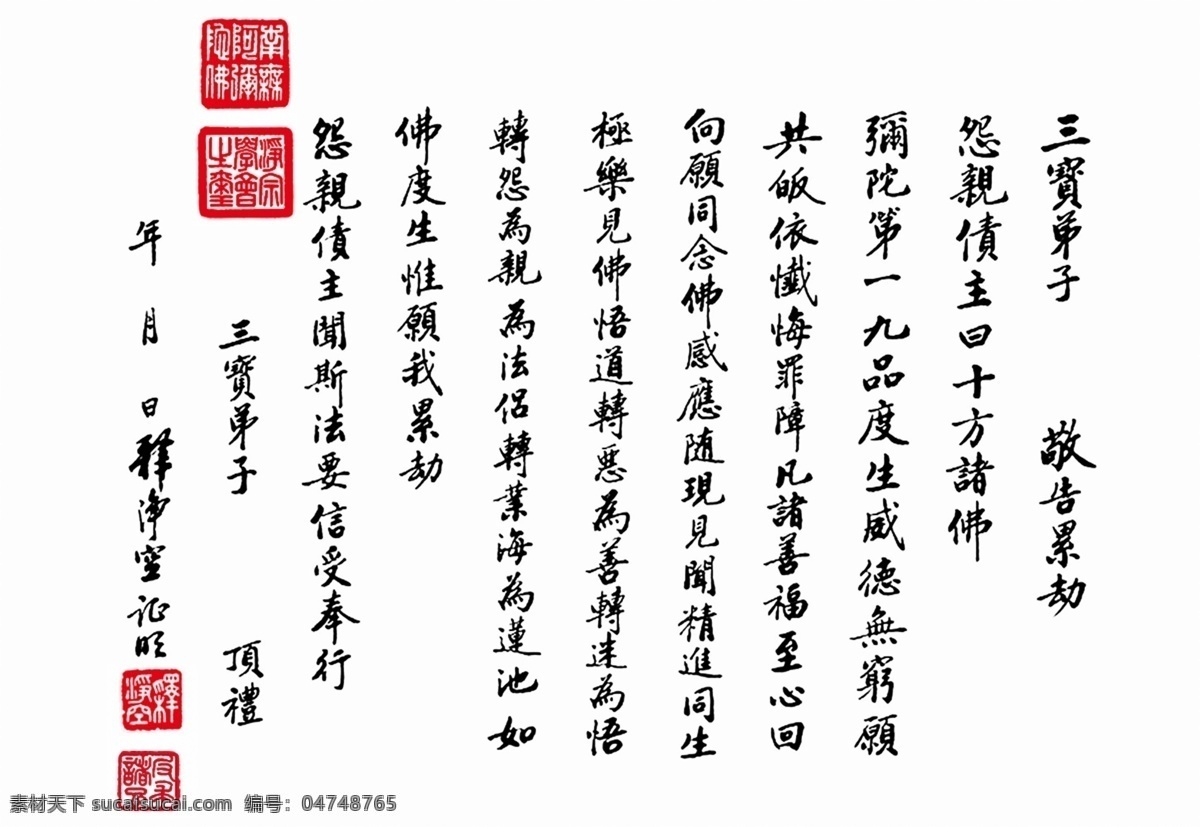 三寶弟子 敬告累劫
怨親債主曰十方諸佛
彌陀第一九品度生威德無窮願
共皈依懺悔罪障凡諸善福至心回
向願同念佛感應随現見聞精進同生
極樂見佛悟道轉惡為善轉迷為悟
轉怨為親為法侶轉業海為蓮池如
佛度生惟願我累劫
怨親債主聞斯法要信受奉行
三寶弟子 頂禮
年 月 日 釋淨空 证明
南無阿彌陀佛
淨宗學會之璽
釋淨空
素材天下 sucaisucai.com 编号：04748765